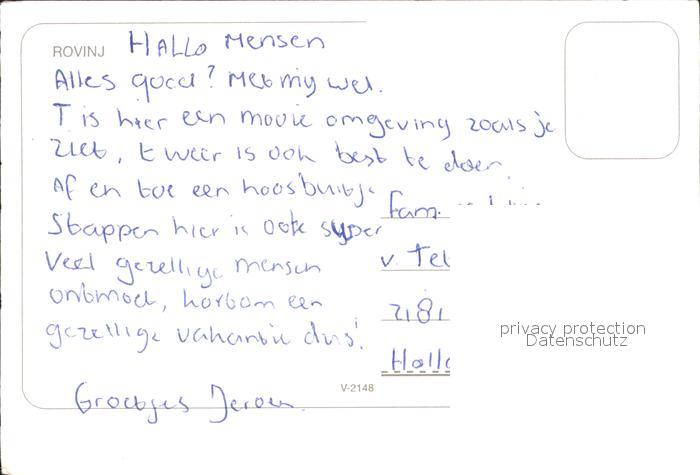 ROVINJ HALLO Mensen
Alles goed? Met mij wel.
T is hier een mooie omgeving zoals je
ziet, t weer is ook best te doen.
Af en toe een hoosbuitje
Stappen hier is ook super
Veel gezellige mensen
ontmoet, kortom een
gezellige vakantie dus!
Groetjes Jeroen.
fam.
v. Tel
2181
Holl
V-2148
privacy protection
Datenschutz